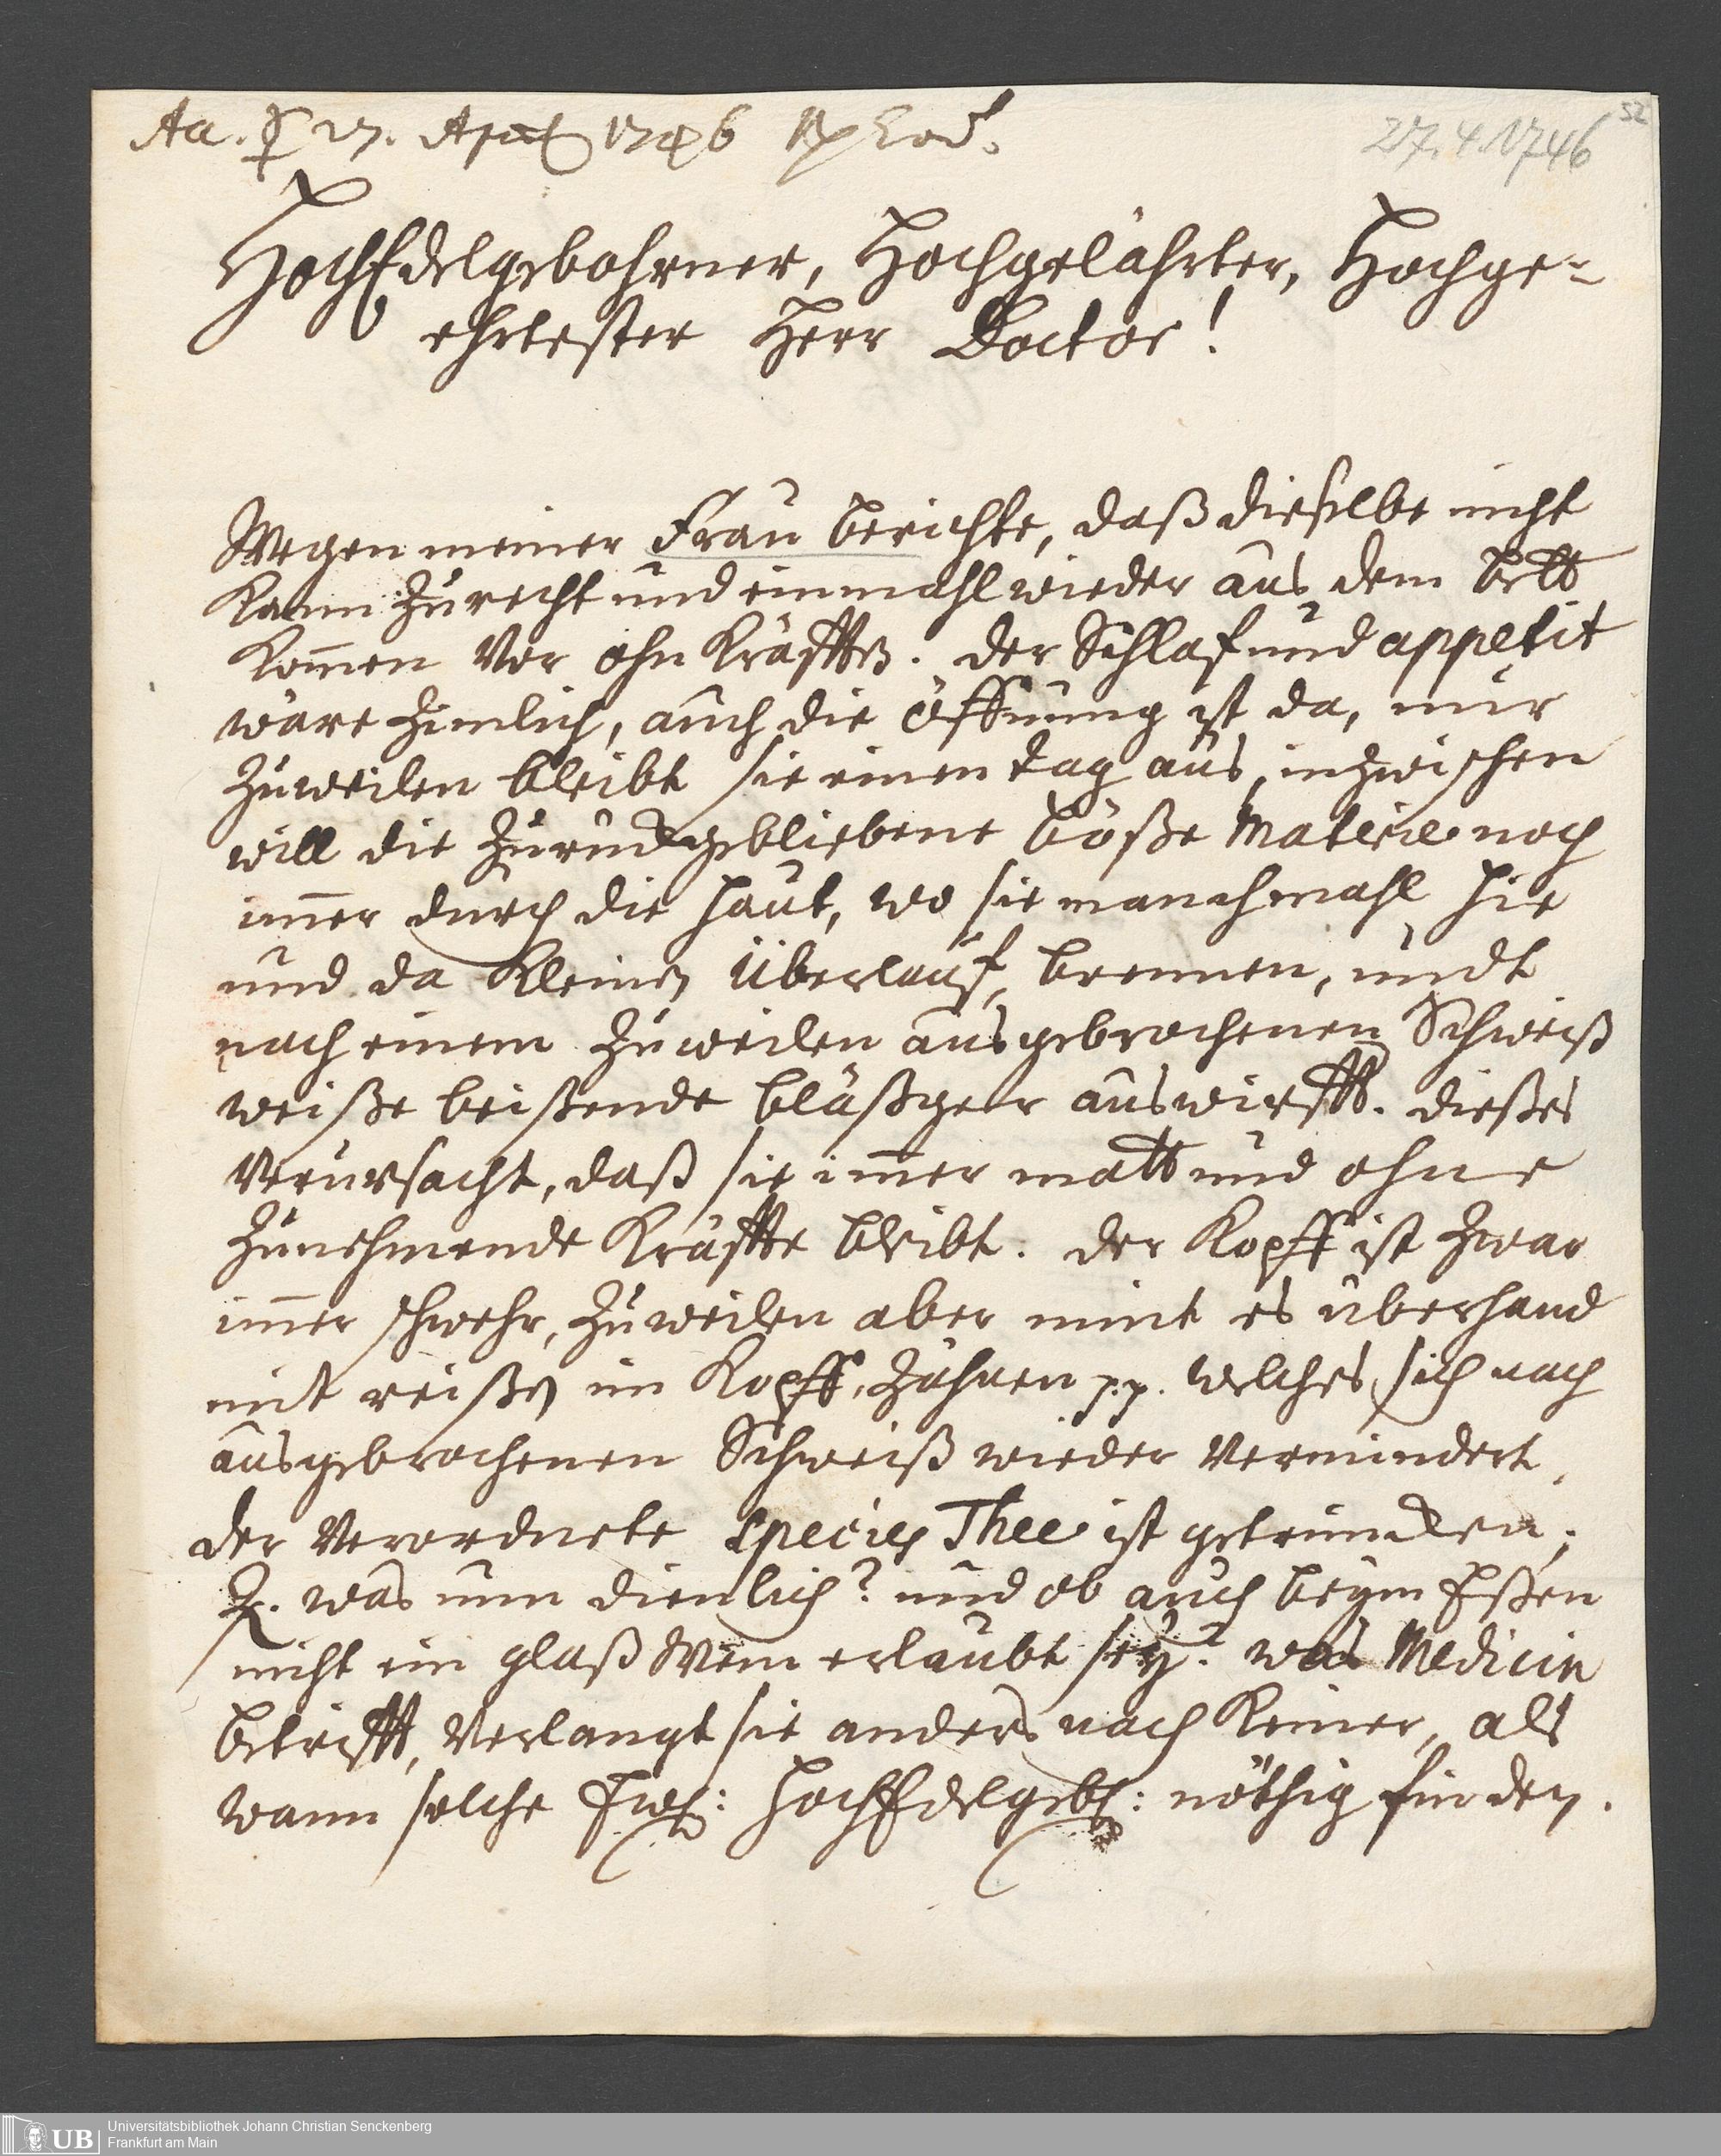 Aa. ☿ 27. April 1746 Rx Eod.
27.4.1746
52
HochEdelgebohrner, Hochgelährter, Hochge-
ehrtester Herr Doctor!
Wegen meiner Frau berichte, daß dieselbe nicht
kann zurecht und einmahl wieder aus dem bett
kom̄en vor ohn Kräfften. der Schlaf und appetit
wäre zimlich, auch die öffnung ist da, nur
zuweilen bleibt sie einen tag aus, inzwischen
will die zurückgebliebene böße Materie noch
im̄er durch die haut, wo sie manchmahl hie
und da kleinen überlauf, brennen, undt
nach einem zuweilen ausgebrochenen Schweiß
weiße beißende bläßger auswirfft. dießes
verursacht, daß sie im̄er matt und ohne
zunehmende Kräffte bleibt. der Kopff ist zwar
im̄er schwehr, zuweilen aber nimt es überhand
mit reißen im Kopff, Zähnen p.p. welches sich nach
ausgebrochenen Schweiß wieder vermindert.
der verordnete Species Thee ist getruncken;
Q. was nun dienlich? und ob auch beym Eßen
nicht ein glaß Wein erlaubt sey? was Medicin
betrifft, verlangt sie anders nach keiner, als
wann solche Ew: HochEdelgeb: nöthig finden.
UB
Universitätsbibliothek Johann Christian Senckenberg
Frankfurt am Main